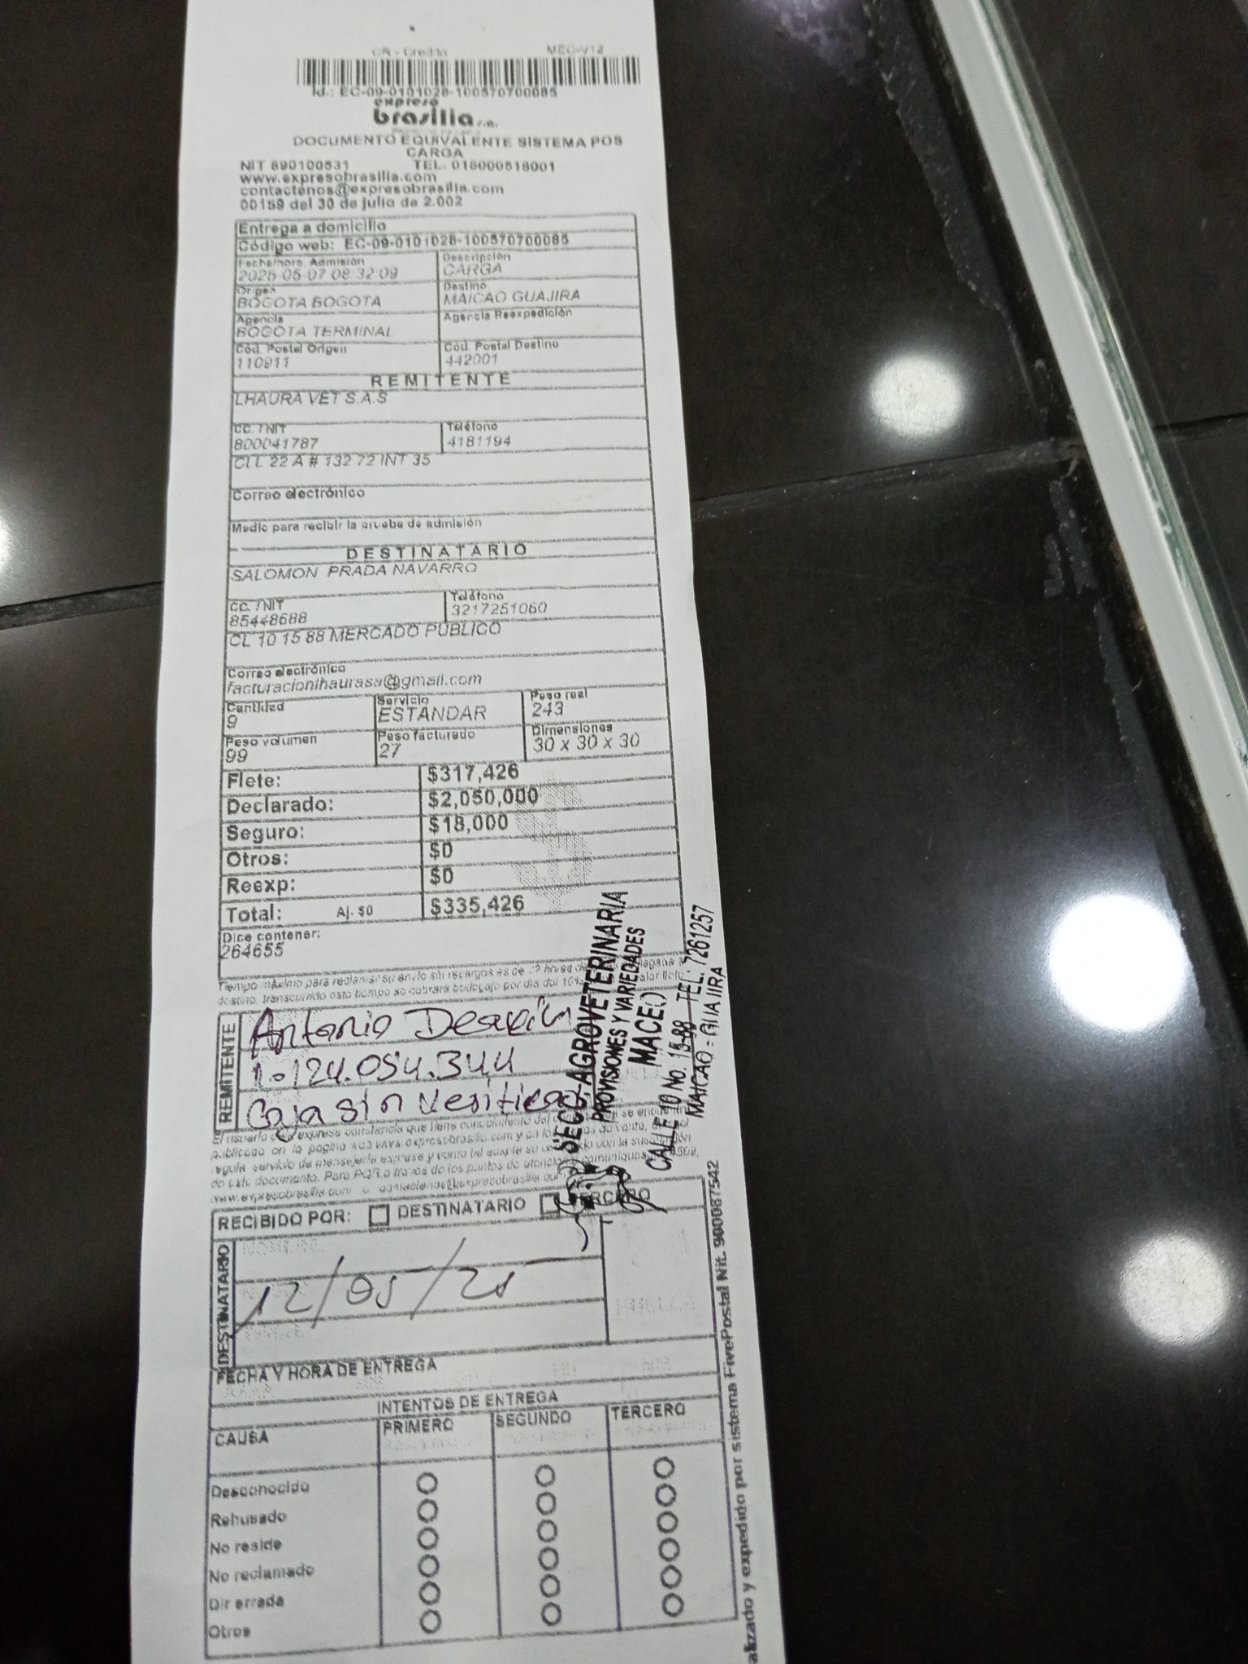 CR - Credito MEC-V12
Id.: EC-09-0101028-100570700085
expreso
brasilia s.a.
DOCUMENTO EQUIVALENTE SISTEMA POS
CARGA
NIT 890100531 TEL. 018000518001
www.expresobrasilia.com
contactenos@expresobrasilia.com
00159 del 30 de julio de 2.002
Entrega a domicilio
Código web: EC-09-0101028-100570700085
Fecha/hora. Admisión Descripción
2025-05-07 08:32:09 CARGA
Origen Destino
BOGOTA BOGOTA MAICAO GUAJIRA
Agencia Agencia Reexpedición
BOGOTA TERMINAL
Cód. Postal Origen Cód. Postal Destino
110911 442001
REMITENTE
LHAURA VET S.A.S
CC. / NIT Teléfono
800041787 4181194
CLL 22 A # 132 72 INT 35
Correo electrónico
Medio para recibir la prueba de admisión
DESTINATARIO
SALOMON PRADA NAVARRO
CC. / NIT Teléfono
85448688 3217251060
CL 10 15 88 MERCADO PUBLICO
Correo electrónico
facturacionlhaurasa@gmail.com
Cantidad Servicio Peso real
9 ESTANDAR 243
Peso volumen Peso facturado Dimensiones
99 27 30 x 30 x 30
Flete: $317,426
Declarado: $2,050,000
Seguro: $18,000
Otros: $0
Reexp: $0
Total: Aj. $0 $335,426
Dice contener:
264655
Tiempo máximo para reclamar su envío sin recargos es de
destino, transcurrido este tiempo se cobrará bodegaje por día del
REMITENTE
Antonio
1.124.054.344
Caja sin verificar
AGROVETERINARIA
PROVISIONES Y VARIEDADES
MACEO
CALLE 10 No. 15-88 TEL: 7261257
MAICAO - GUAJIRA
El usuario deja expresa constancia que tiene conocimiento del
publicado en la pagina web www.expresobrasilia.com y en los
regula servicio de mensajería expresa y como tal acepta su
de este documento. Para PQR a través de los puntos de atención
www.expresobrasilia.com o contactenos@expresobrasilia.com
RECIBIDO POR: DESTINATARIO TERCERO
DESTINATARIO
12/05/25
FECHA Y HORA DE ENTREGA
INTENTOS DE ENTREGA
CAUSA PRIMERO SEGUNDO TERCERO
Desconocido
Rehusado
No reside
No reclamado
Dir errada
Otros
alizado y expedido por sistema FivePostal Nit. 900087542